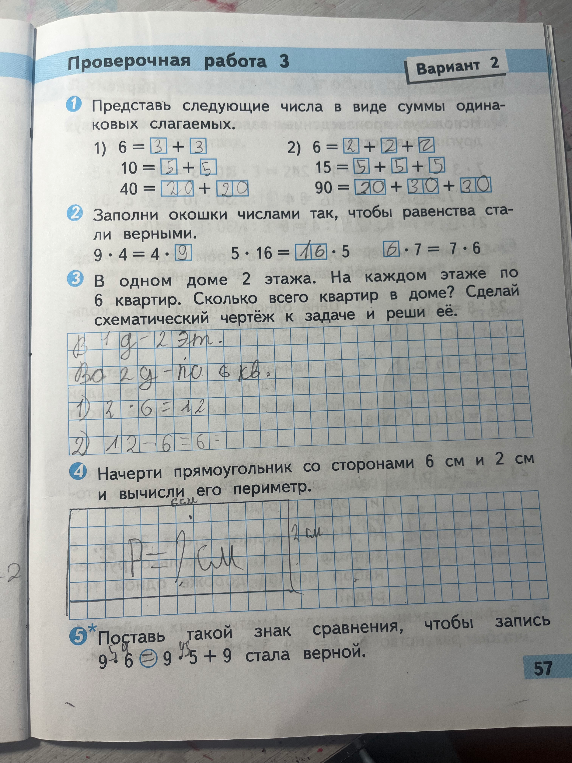 Проверочная работа 3
Вариант 2
1 Представь следующие числа в виде суммы одина-
ковых слагаемых.
1) 6 = 3 + 3 2) 6 = 2 + 2 + 2
10 = 5 + 5 15 = 5 + 5 + 5
40 = 20 + 20 90 = 20 + 30 + 30
2 Заполни окошки числами так, чтобы равенства ста-
ли верными.
9 · 4 = 4 · 9 5 · 16 = 16 · 5 6 · 7 = 7 · 6
3 В одном доме 2 этажа. На каждом этаже по
6 квартир. Сколько всего квартир в доме? Сделай
схематический чертёж к задаче и реши её.
В 1 д - 2 эт.
Во 2 д - по 6 кв.
1) 2 · 6 = 12
2) 12 - 6 = 6
4 Начерти прямоугольник со сторонами 6 см и 2 см
и вычисли его периметр.
6 см
2 см
P = ? см
5* Поставь такой знак сравнения, чтобы запись
9 · 6 = 9 · 5 + 9 стала верной.
57